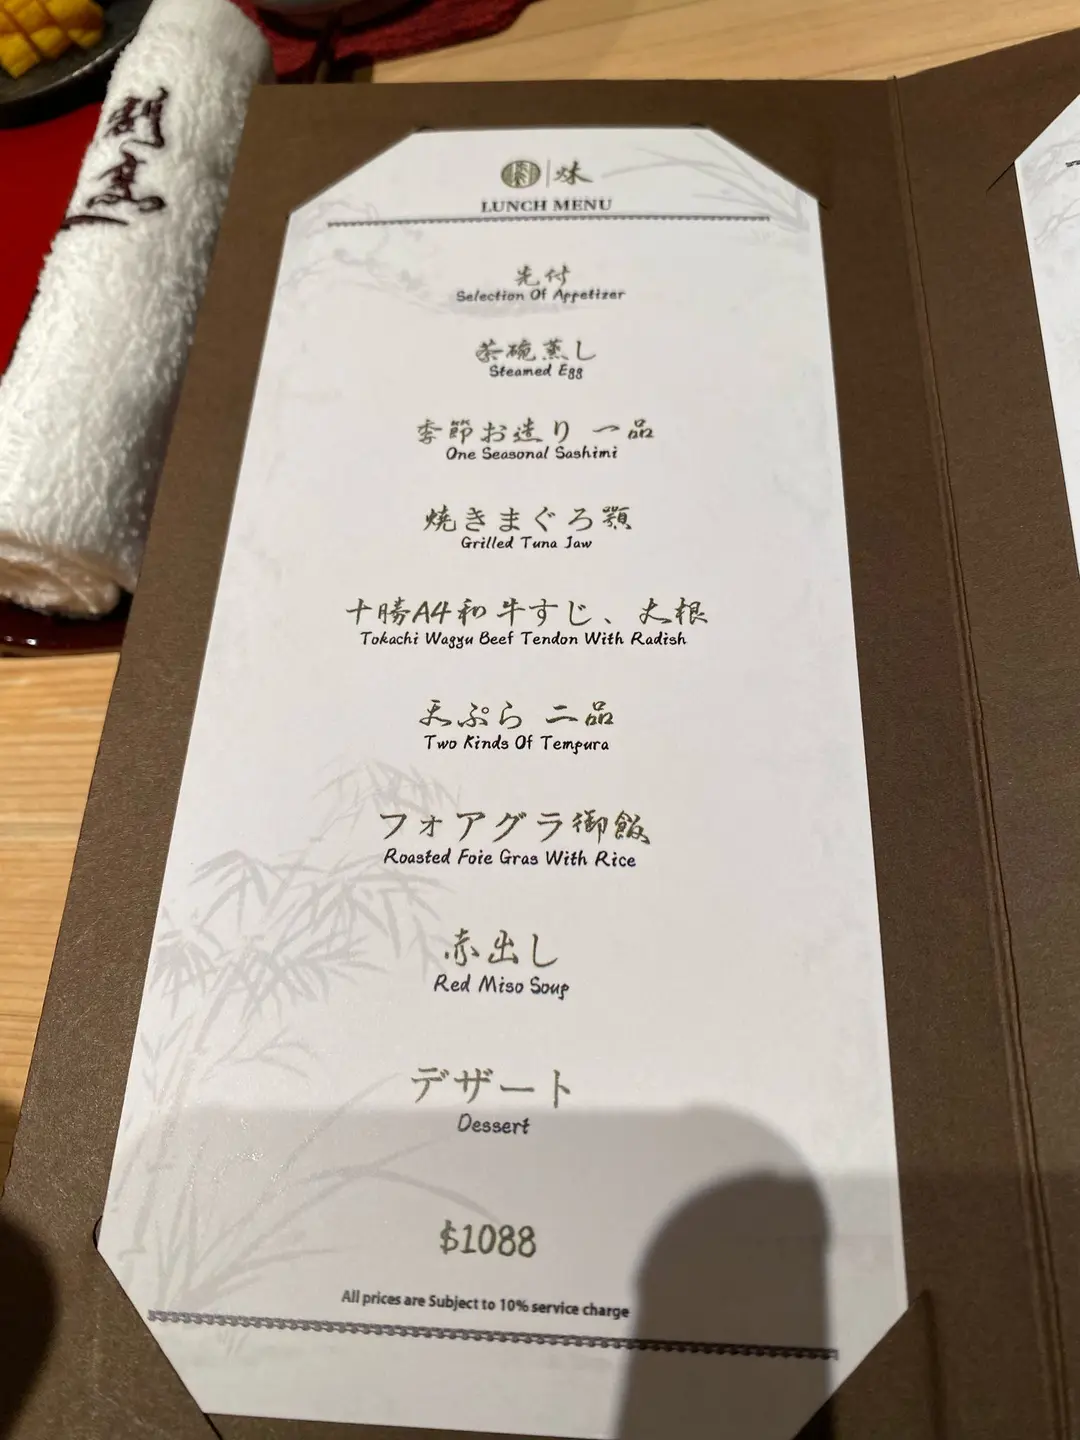 割烹
一
味
LUNCH MENU
先付
Selection Of Appetizer
茶碗蒸し
Steamed Egg
季節お造り 一品
One Seasonal Sashimi
焼きまぐろ顎
Grilled Tuna Jaw
十勝A4和牛すじ、大根
Tokachi Wagyu Beef Tendon With Radish
天ぷら 二品
Two Kinds Of Tempura
フォアグラ御飯
Roasted Foie Gras With Rice
赤出し
Red Miso Soup
デザート
Dessert
$1088
All prices are Subject to 10% service charge